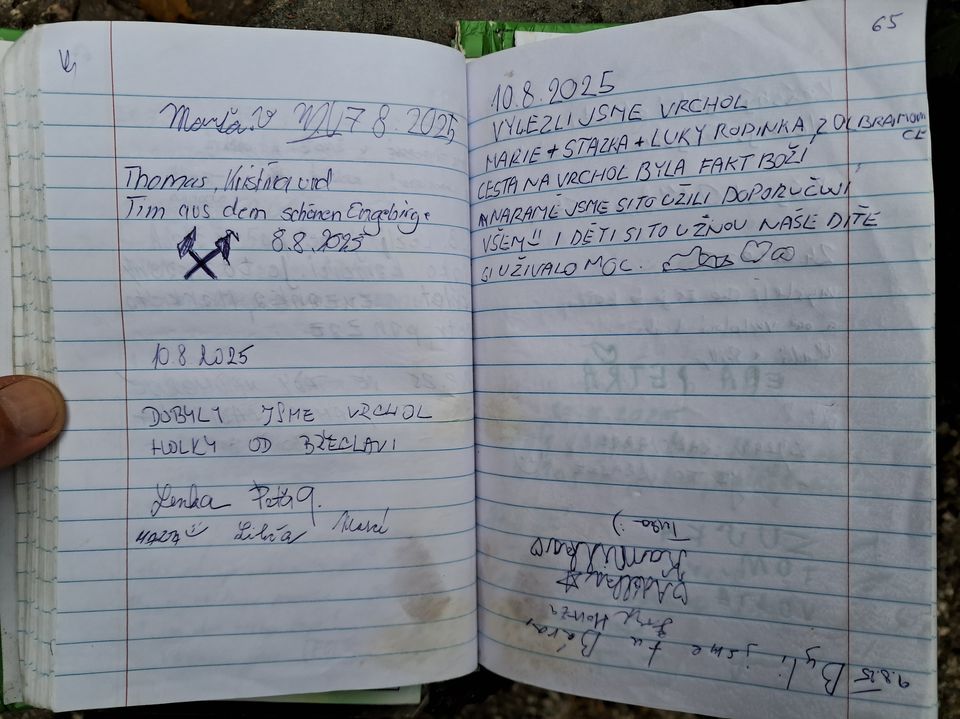 7 8. 2025
Thomas, Kristina und
Tim aus dem schönen Erzgebirge
8.8.2025
10.8.2025
DOBYLY JSME VRCHOL
HOLKY OD BŘECLAVI
Lenka Petra
65
10.8.2025
VYLEZLI JSME VRCHOL
MARIE + STAZKA + LUKY RODINKA Z OLBRAMOVI
CE
CESTA NA VRCHOL BYLA FAKT BOŽÍ
NARAMĚ JSME SI TO UŽILI DOPORUČUJI
VŠEM!! I DĚTI SI TO UŽNOU NAŠE DÍTĚ
SI UŽIVALO MOC.
9.8.25 Byli jsme tu Bára,
Honza
Adélka
Kamilka
:)